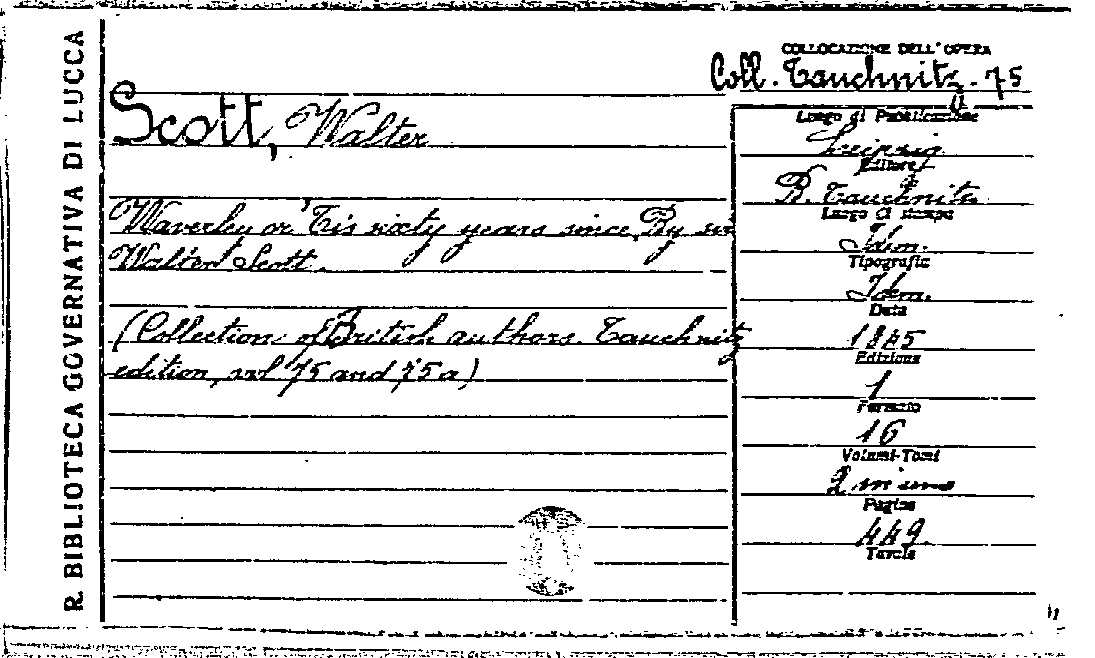 R. BIBLIOTECA GOVERNATIVA DI LUCCA
COLLOCAZIONE DELL' OPERA
Coll. Tauchnitz - 75
Scott, Walter
Waverley or 'Tis sixty years since. By sir
Walter Scott.
(Collection of British authors. Tauchnitz
edition, vol 75 and 75 a)
Luogo di Pubblicazione
Leipzig
Editore
B. Tauchnitz
Luogo di stampa
Idem.
Tipografia
Idem.
Data
1845
Edizione
1
Formato
16
Volumi-Tomi
2 in uno
Pagine
449.
Tavole